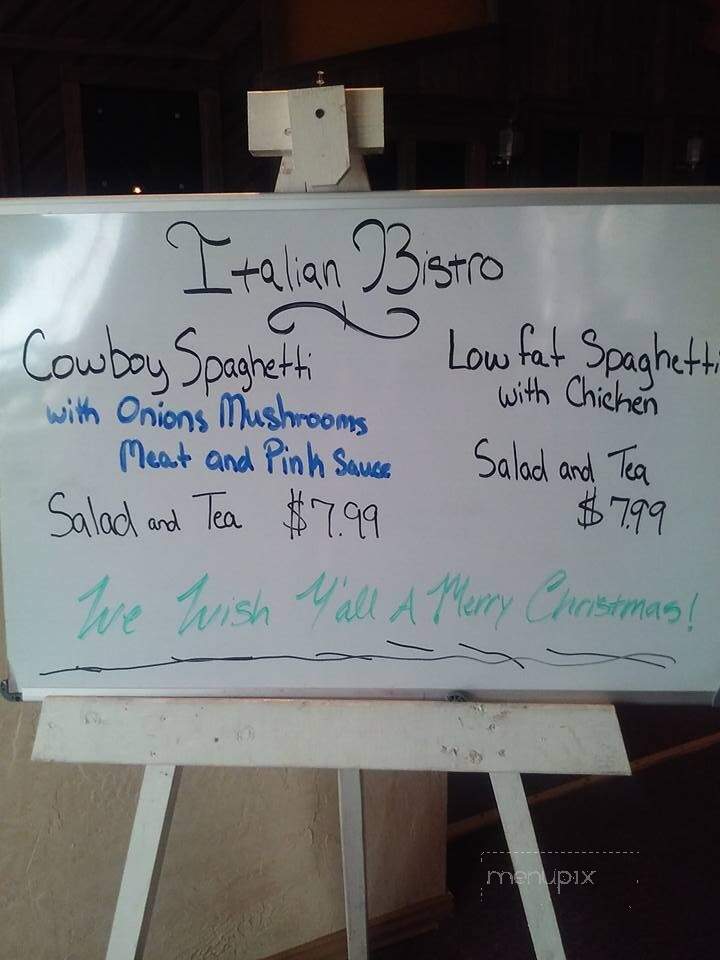 Italian Bistro
Cowboy Spaghetti
with Onions Mushrooms
Meat and Pink Sauce
Salad and Tea $7.99
Low fat Spaghetti
with Chicken
Salad and Tea
$7.99
We Wish Y'all A Merry Christmas!
menupix